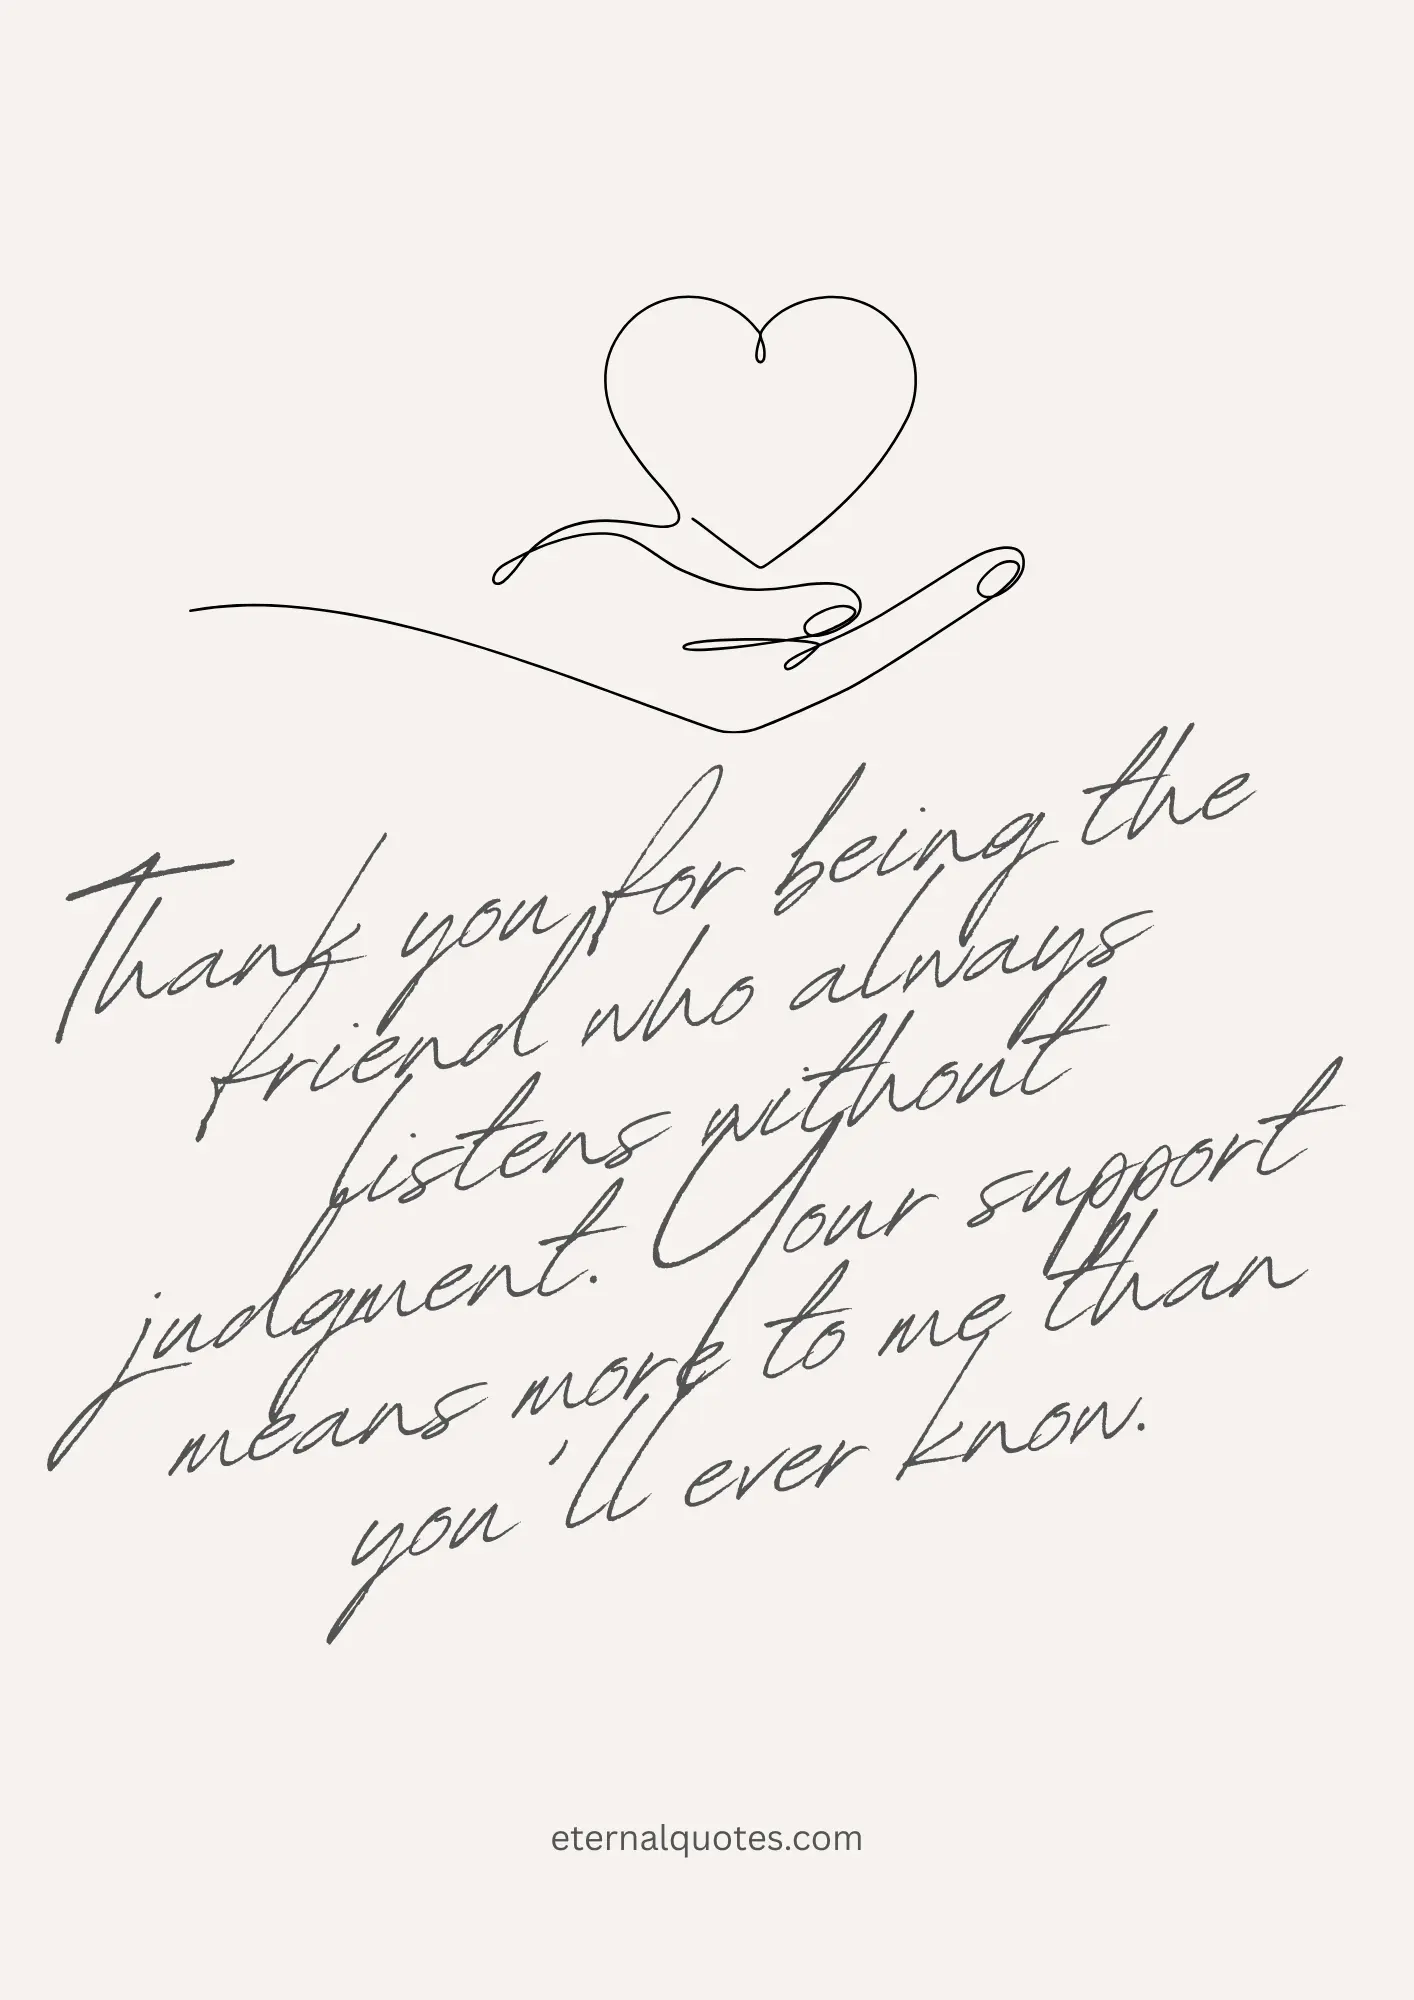 Thank you for being the
friend who always
listens without
judgment. Your support
means more to me than
you'll ever know.
eternalquotes.com